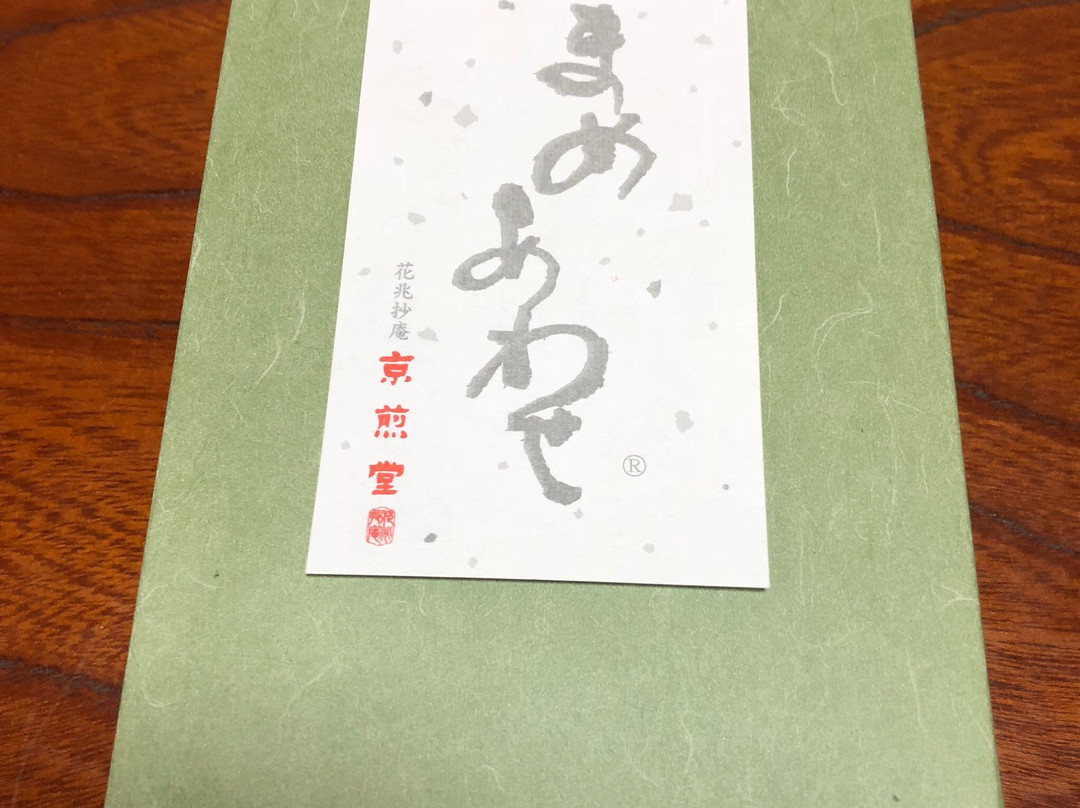 まめあわせ
®
花兆抄庵
京煎堂